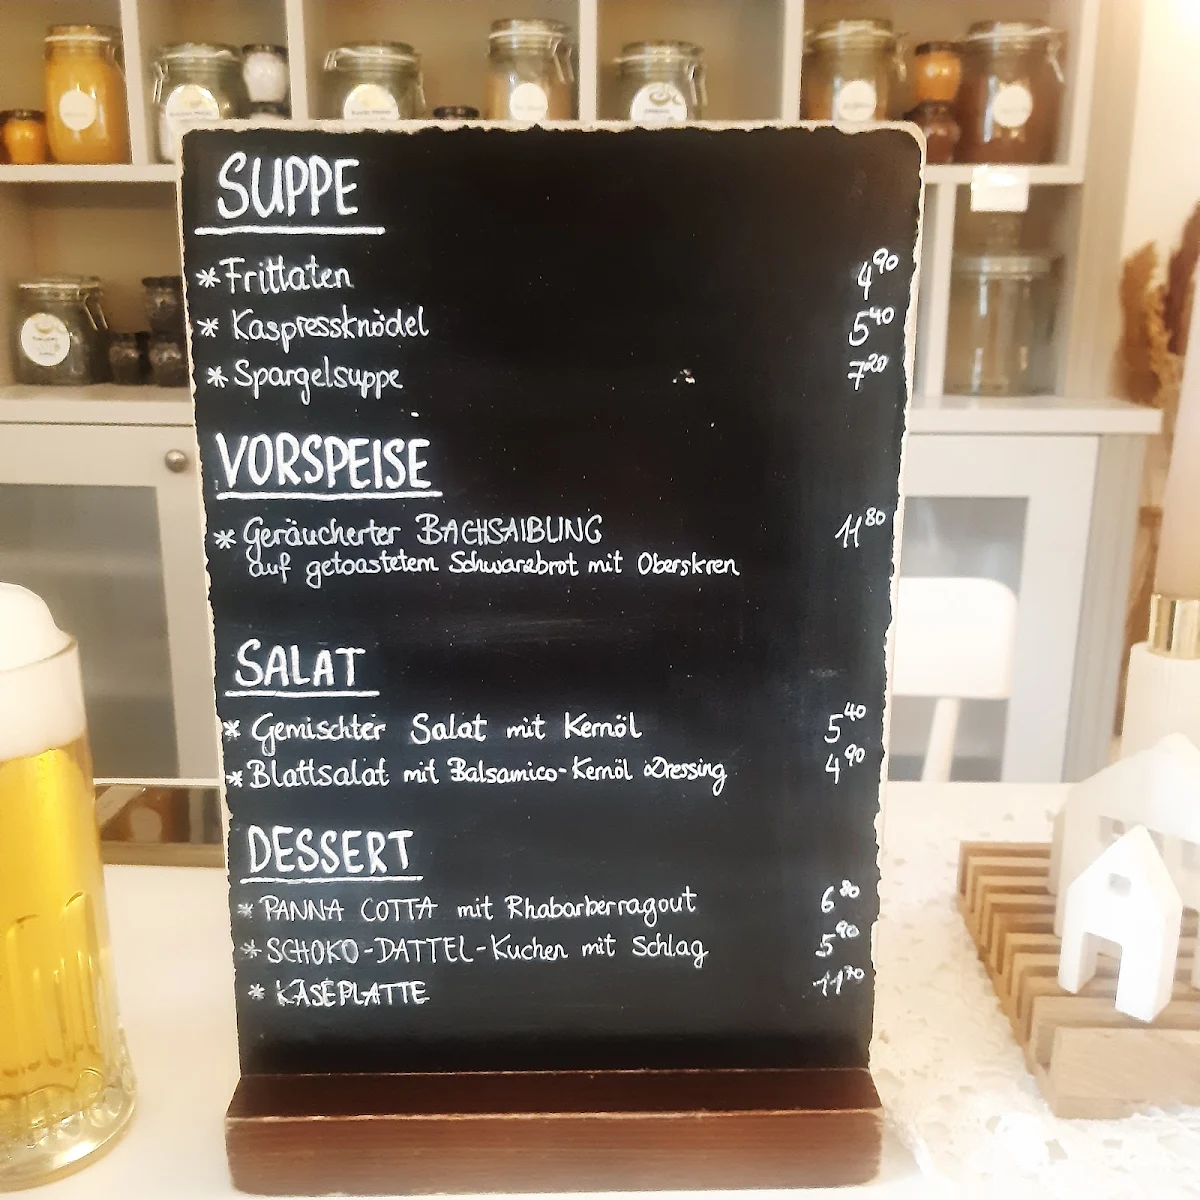 SUPPE
* Frittaten 4,90
* Kaspressknödel 5,40
* Spargelsuppe 7,20
VORSPEISE
* Geräucherter BACHSAIBLING 11,80
auf getoastetem Schwarzbrot mit Oberskren
SALAT
* Gemischter Salat mit Kernöl 5,40
* Blattsalat mit Balsamico-Kernöl Dressing 4,90
DESSERT
* PANNA COTTA mit Rhabarberragout 6,80
* SCHOKO-DATTEL-Kuchen mit Schlag 5,90
* KÄSEPLATTE